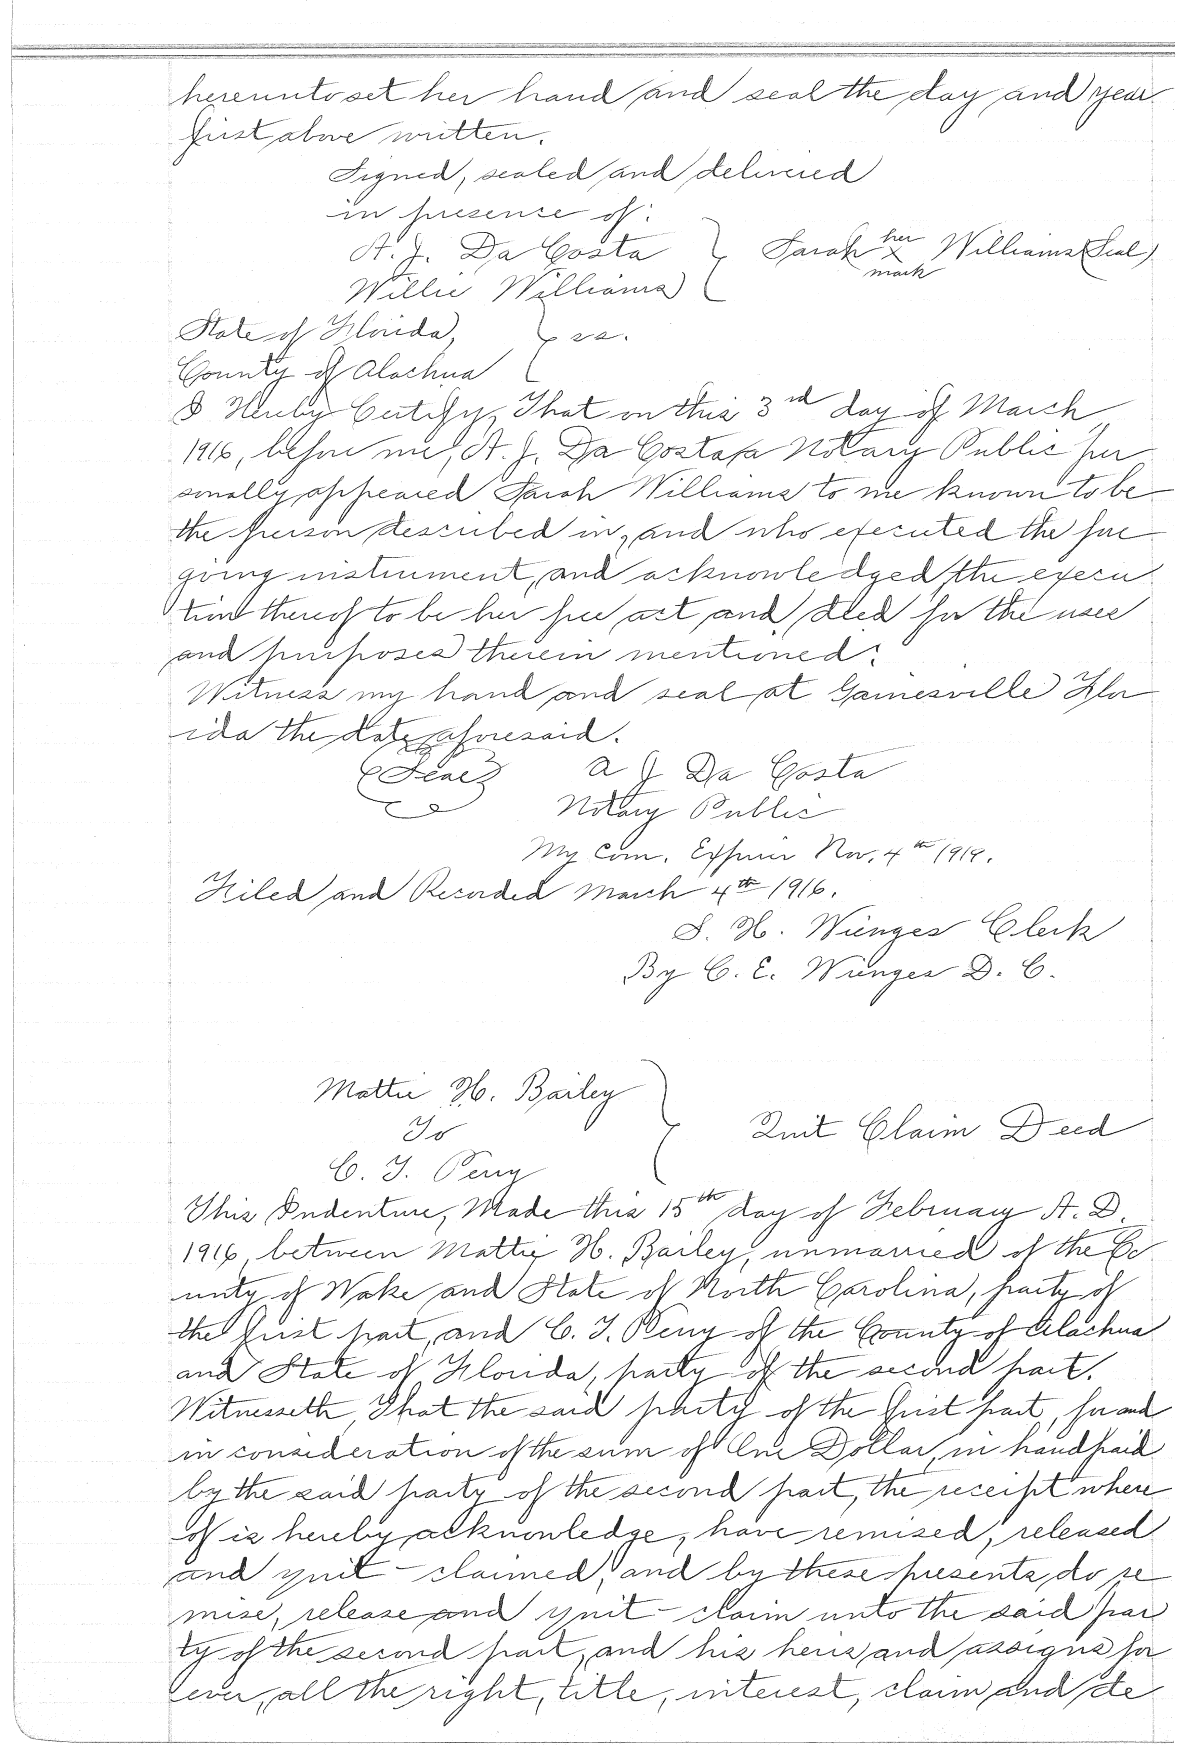 hereunto set her hand and seal the day and year
first above written.
Signed, sealed and delivered
in presence of:
A. J. Da Costa } Sarah her x mark Williams (Seal)
Willie Williams
State of Florida, } ss.
County of Alachua
I Hereby Certify, That on this 3rd day of March
1916, before me, A. J. Da Costa, a Notary Public per
sonally appeared Sarah Williams to me known to be
the person described in, and who executed the fore
going instrument, and acknowledged the execu
tion thereof to be her free act and deed for the uses
and purposes therein mentioned.
Witness my hand and seal at Gainesville Flor
ida the date aforesaid.
(Seal) A J Da Costa
Notary Public
My Com. Expires Nov. 4th 1919.
Filed and Recorded March 4th 1916.
S. H. Wienges Clerk
By C. E. Wienges D. C.
Mattie H. Bailey
To } Quit Claim Deed
C. T. Perry
This Indenture, Made this 15th day of February A. D.
1916, between Mattie H. Bailey, unmarried of the Co
unty of Wake and State of North Carolina, party of
the first part, and C. T. Perry of the County of Alachua
and State of Florida, party of the second part.
Witnesseth, That the said party of the first part, for and
in consideration of the sum of One Dollar, in hand paid
by the said party of the second part, the receipt where
of is hereby acknowledge, have remised, released
and quit-claimed, and by these presents, do re
mise, release and quit-claim unto the said par
ty of the second part, and his heirs and assigns for
ever, all the right, title, interest, claim and de